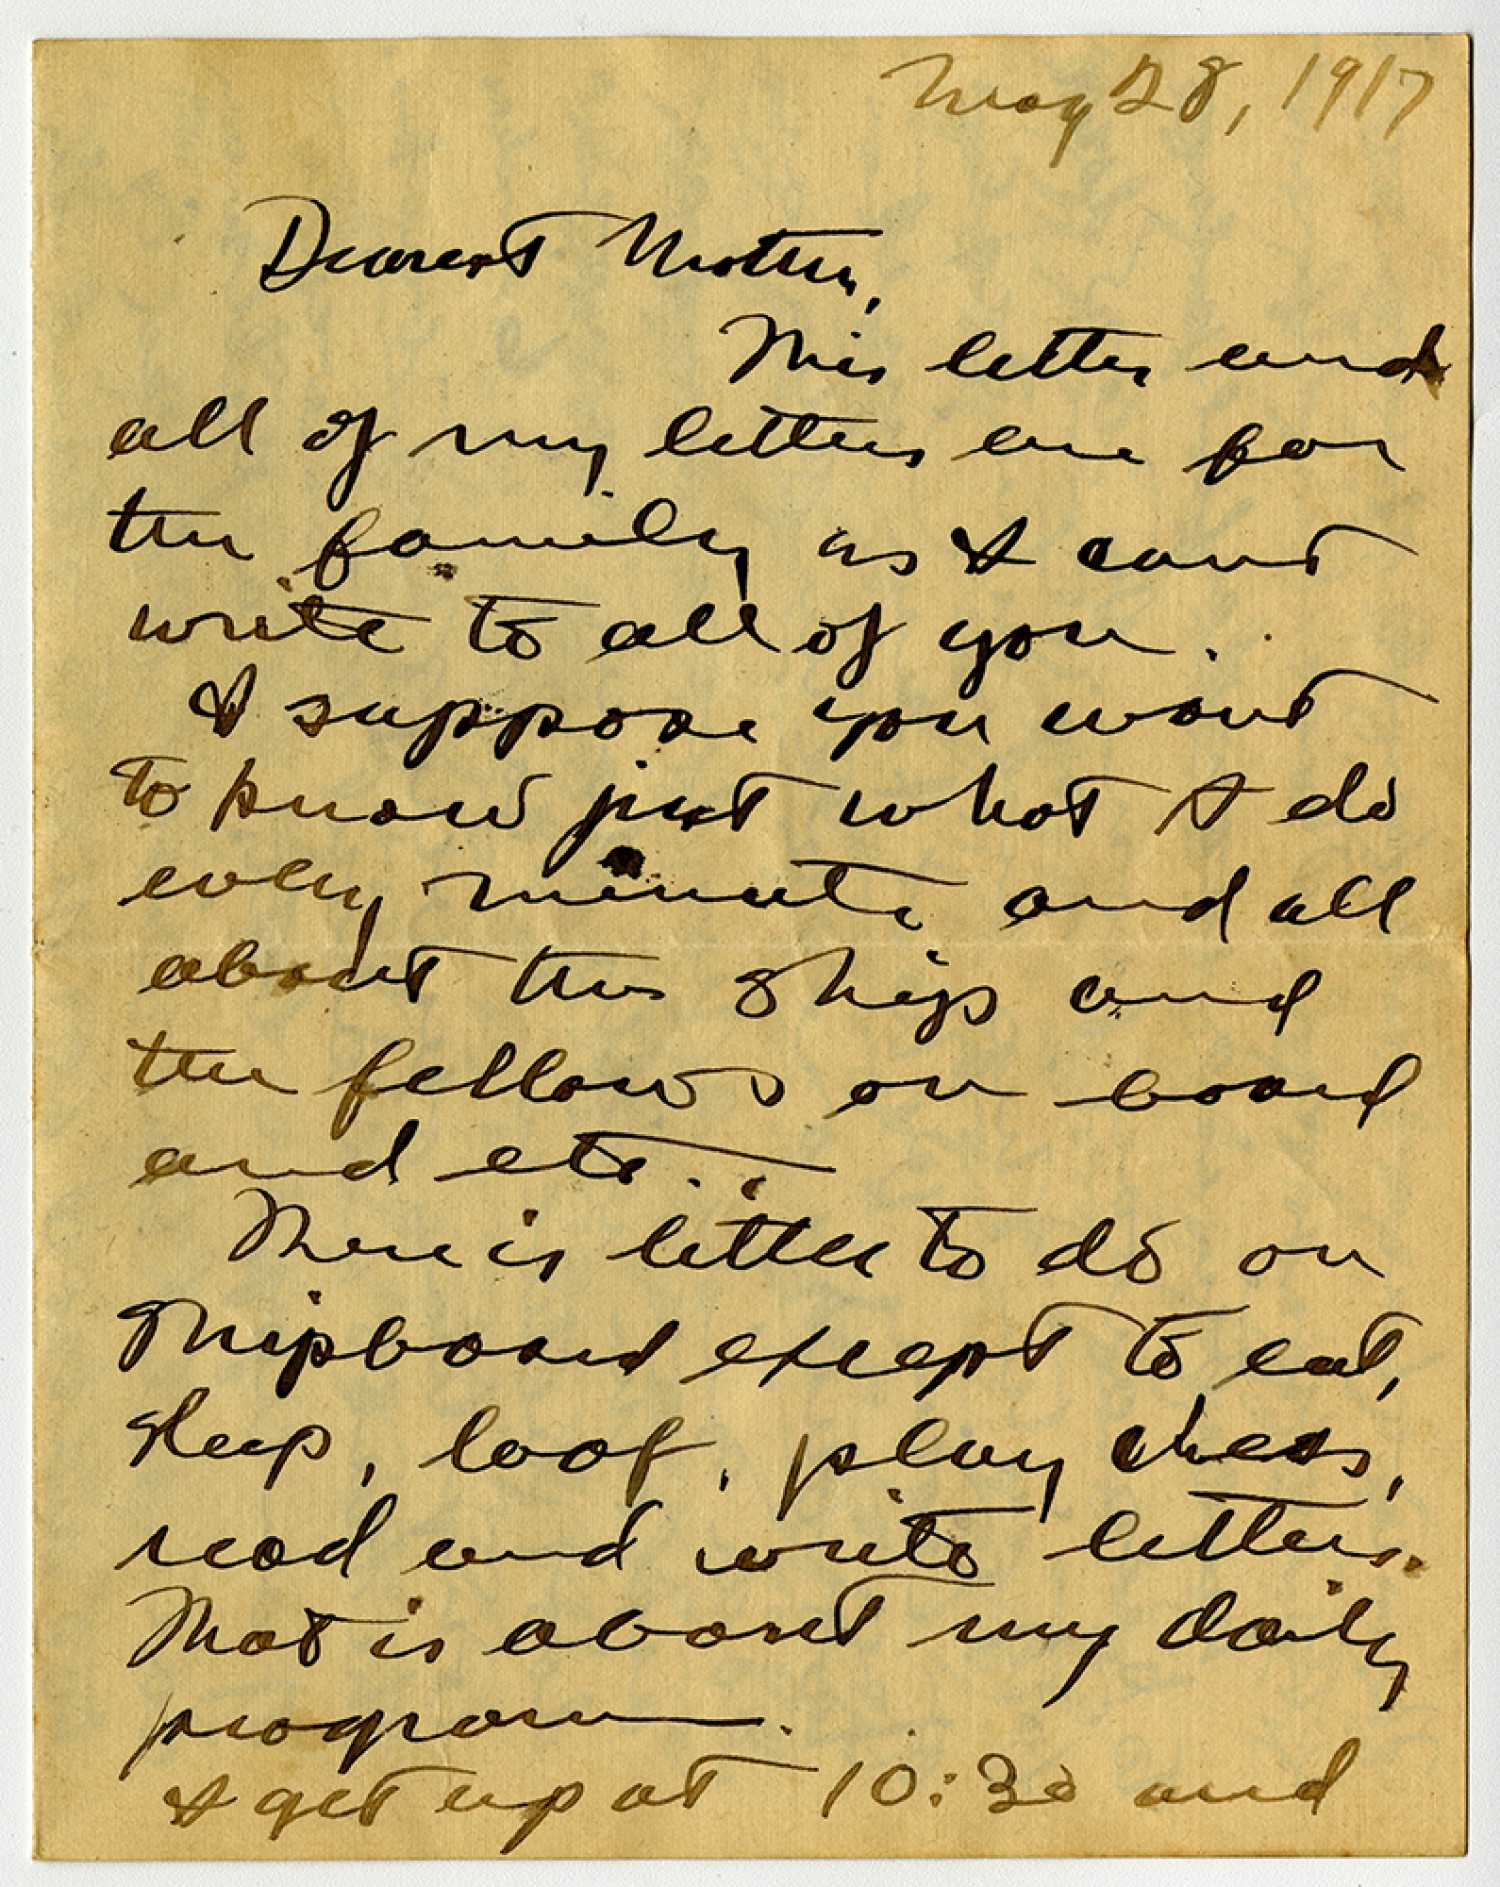 May 28, 1917
Dearest Mother,
This letter and
all of my letters are for
the family as I cant
write to all of you.
I suppose you want
to know just what I do
every minute and all
about the ship and
the fellows on board
and etc..
There is little to do on
shipboard except to eat,
sleep, loaf, play chess,
read and write letters.
That is about my daily
program.
I get up at 10:30 and